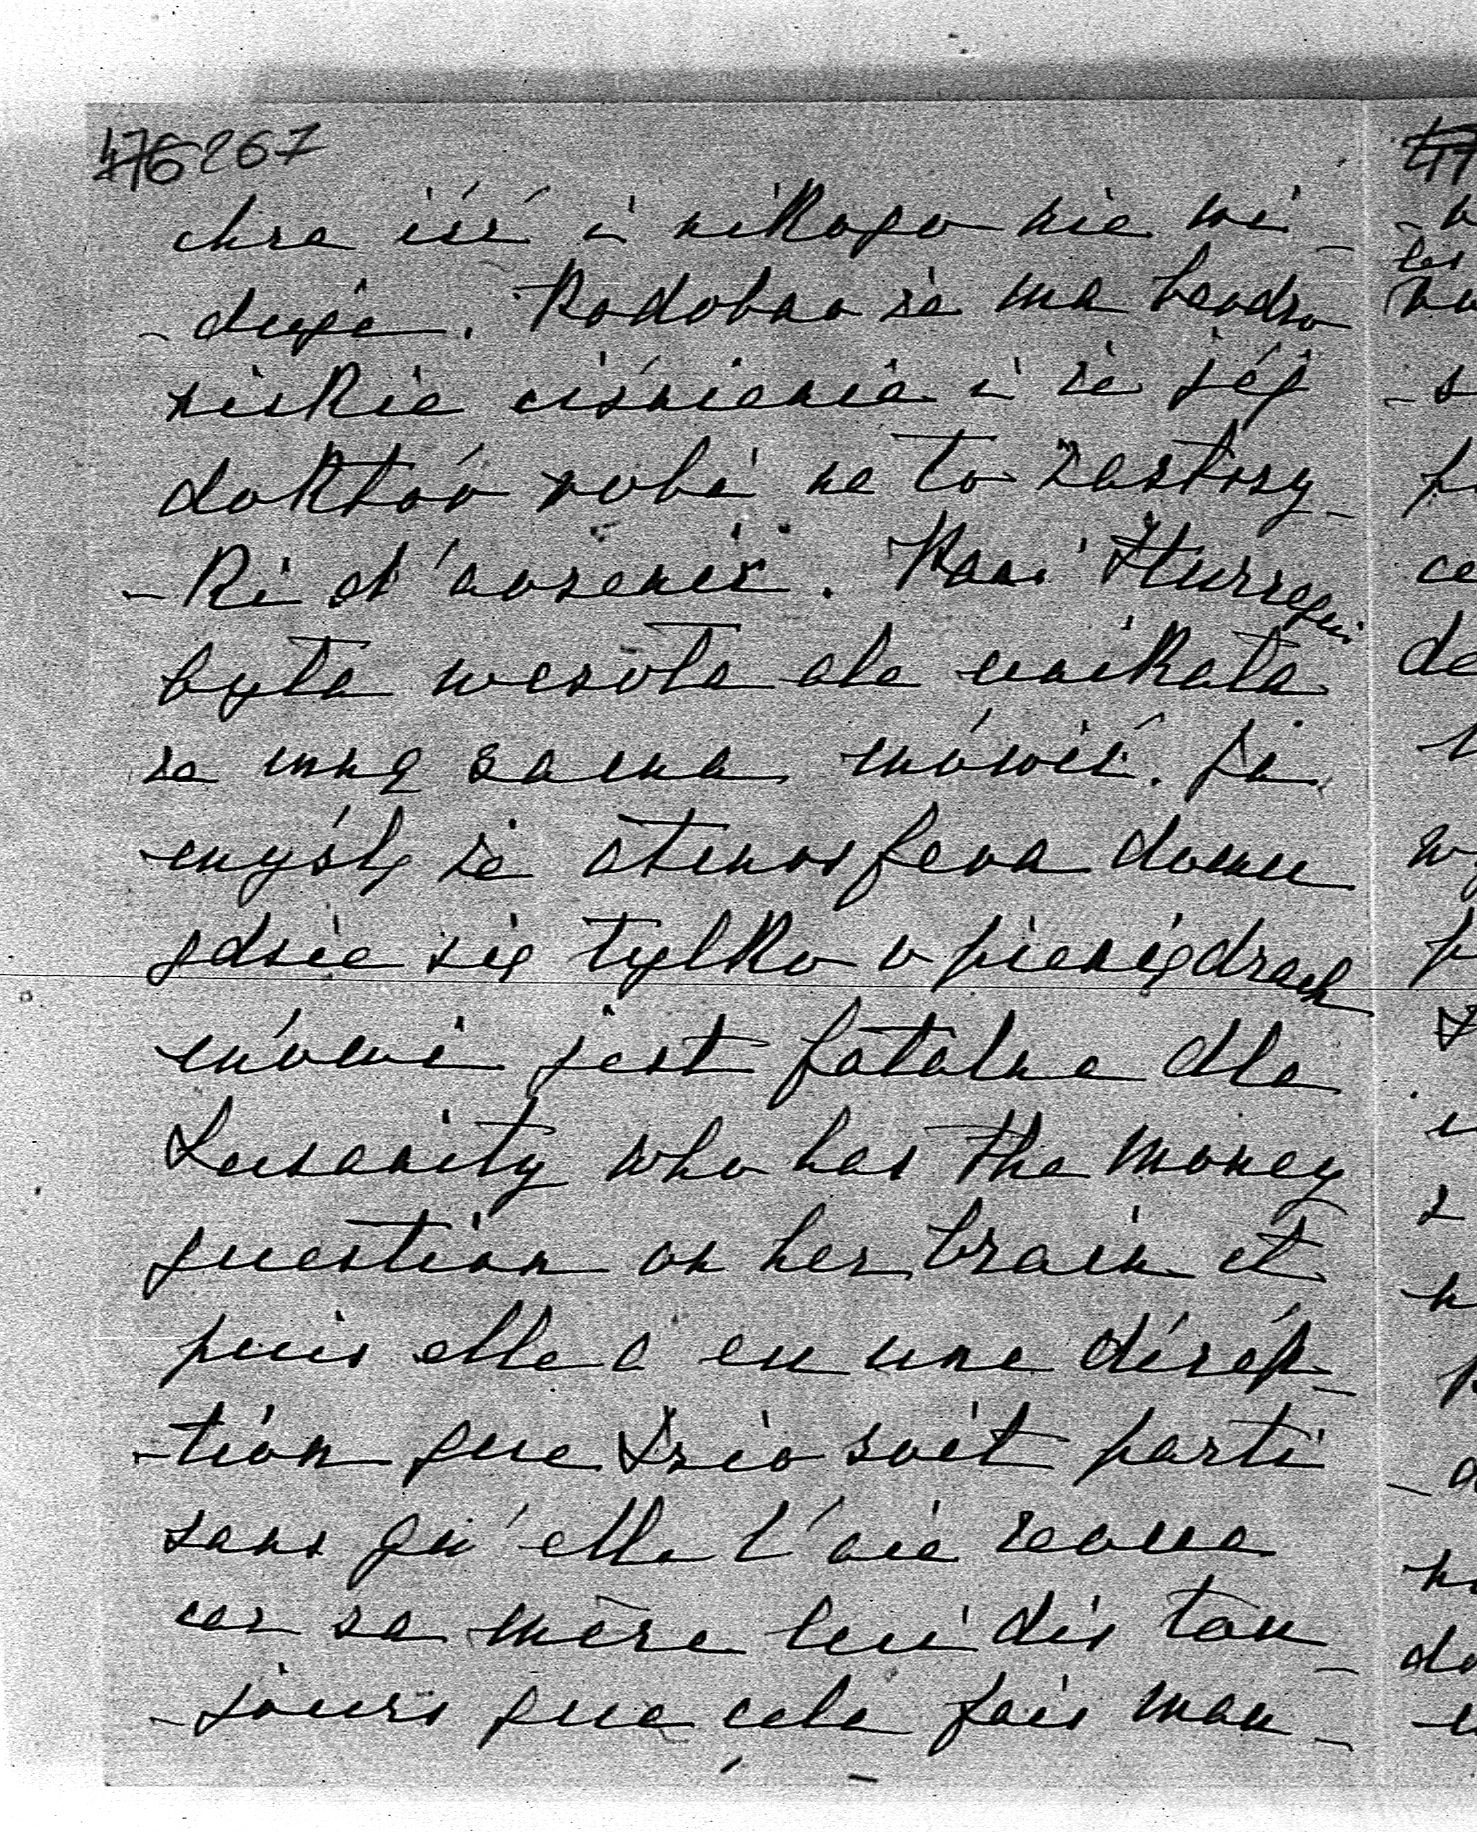 476 267
chce iść i nikogo nie wi-
-duje. Podobno że ma bardzo
niskie ciśnienie i że jéj
doktór robi na to zastrzy-
-ki d'arsenic. Pani Iturregui
była wesoła ale unikała
ze mną sama mówić. Ja
myślę że atmosfera domu
gdzie się tylko o pieniędzach
mówi jest fatalna dla
who has the money
question on her brain et
puis elle a eu une décép-
-tion que soit parti
sans qu'elle l'aie revue
car sa mère lui dis tou-
-jours que cela fais mau-